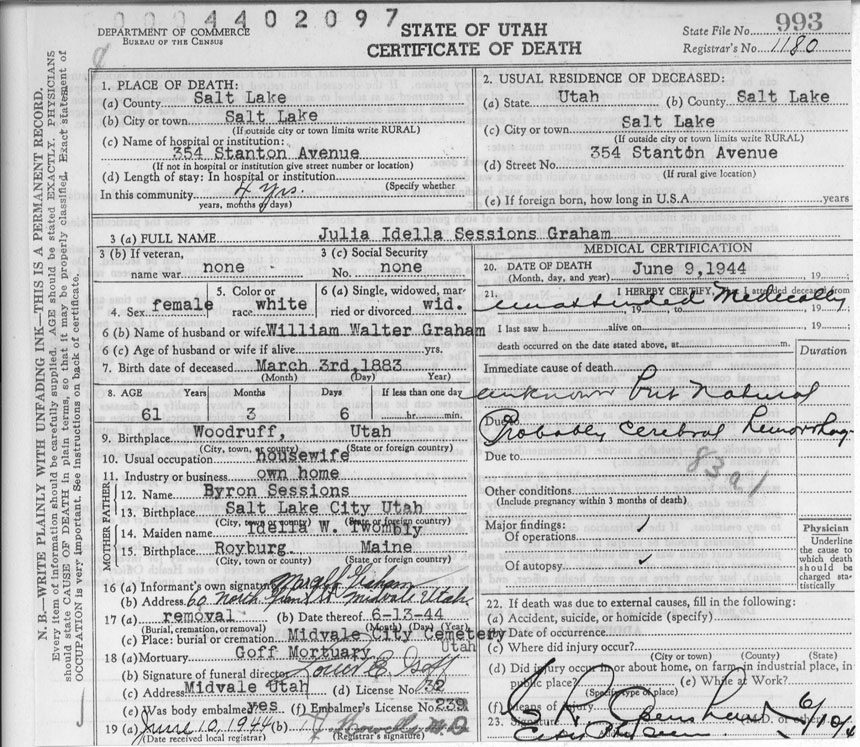 0004402097
DEPARTMENT OF COMMERCE
BUREAU OF THE CENSUS
STATE OF UTAH
CERTIFICATE OF DEATH
State File No. 993
Registrar's No. 1180
N. B.—WRITE PLAINLY WITH UNFADING INK—THIS IS A PERMANENT RECORD.
Every item of information should be carefully supplied. AGE should be stated EXACTLY. PHYSICIANS
should state CAUSE OF DEATH in plain terms, so that it may be properly classified. Exact statement of
OCCUPATION is very important. See instructions on back of certificate.
1. PLACE OF DEATH:
(a) County Salt Lake
(b) City or town Salt Lake
(If outside city or town limits write RURAL)
(c) Name of hospital or institution:
354 Stanton Avenue
(If not in hospital or institution give street number or location)
(d) Length of stay: In hospital or institution
(Specify whether
In this community 4 yrs.
years, months or days)
2. USUAL RESIDENCE OF DECEASED:
(a) State Utah (b) County Salt Lake
(c) City or town Salt Lake
(If outside city or town limits write RURAL)
(d) Street No. 354 Stanton Avenue
(If rural give location)
(e) If foreign born, how long in U.S.A. years
3 (a) FULL NAME Julia Idella Sessions Graham
3 (b) If veteran, name war none
3 (c) Social Security No. none
4. Sex female
5. Color or race white
6 (a) Single, widowed, married or divorced wid.
6 (b) Name of husband or wife William Walter Graham
6 (c) Age of husband or wife if alive yrs.
7. Birth date of deceased March 3rd, 1883
(Month) (Day) Year)
8. AGE Years Months Days If less than one day
61 3 6 hr. min.
9. Birthplace Woodruff, Utah
(City, town, or county) (State or foreign country)
10. Usual occupation housewife
11. Industry or business own home
FATHER
12. Name Byron Sessions
13. Birthplace Salt Lake City Utah
(City, town or county) (State or foreign country)
MOTHER
14. Maiden name Idella W. Twombly
15. Birthplace Royburg. Maine
(City, town or county) (State or foreign country)
16 (a) Informant's own signature Graham
(b) Address 60 North Midvale Utah
17 (a) removal (b) Date thereof 6-13-44
(Burial, cremation, or removal) (Month) (Day) (Year)
(c) Place: burial or cremation Midvale City Cemetery
Utah
18 (a) Mortuary Goff Mortuary
(b) Signature of funeral director Goff
(c) Address Midvale Utah (d) License No. 32
(e) Was body embalmed? yes (f) Embalmer's License No. 239
19 (a) June 10, 1944 (b) M.D.
(Date received local registrar) (Registrar's signature)
MEDICAL CERTIFICATION
20. DATE OF DEATH
(Month, day, and year) June 9, 1944 19
21. I HEREBY CERTIFY, That I attended deceased from
unattended Medically
19 to 19
I last saw h alive on 19
death occurred on the date stated above, at m.
Duration
Immediate cause of death
unknown but natural
Due to Probably cerebral hemorrhag.
Due to
83a1
Other conditions
(Include pregnancy within 3 months of death)
Major findings:
Of operations ✓
Of autopsy ✓
Physician
Underline
the cause to
which death
should be
charged sta-
tistically
22. If death was due to external causes, fill in the following:
(a) Accident, suicide, or homicide (specify)
Date of occurrence
(c) Where did injury occur?
(City or town) (County) (State)
(d) Did injury occur in or about home, on farm, in industrial place, in
public place? (e) While at Work?
(Specify type of place)
(f) Means of injury
23. Signature (M.D. or other)